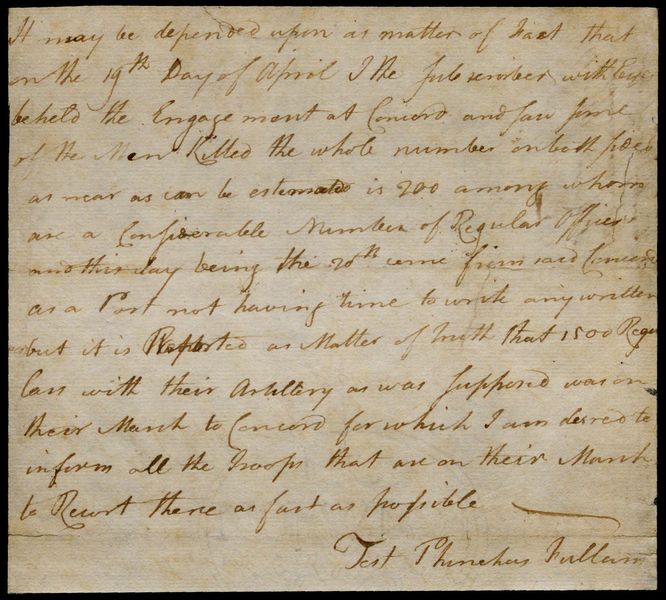 It may be depended upon as matter of Fact that
on the 19th Day of April I the Subscriber with
beheld the Engagement at Concord and saw some
of the Men Killed the whole number on both sides
as near as can be estemated is 200 among whom
are a Considerable Number of Regular Officers
and this day being the 20th came from said Concord
as a Post not having time to write any written
but it is Reported as Matter of truth that 1500 Regu
lars with their Artillery as was supposed was on
their March to Concord for which I am desired to
inform all the Troops that are on their March
to Resort there as fast as possible
Test Phinehas Fullam